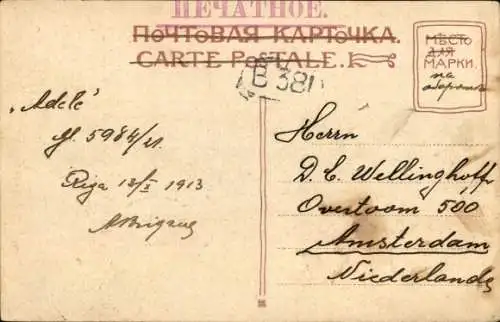 ПЕЧАТНОЕ.
ПОЧТОВАЯ КАРТОЧКА.
CARTE POSTALE.
МѢСТО
ДЛЯ
МАРКИ.
на
оборотѣ
381
„Adele"
5984/21
Riga 13/I 1913
Herrn
D. C. Wellinghoff
Overtoom 500
Amsterdam
Niederlande